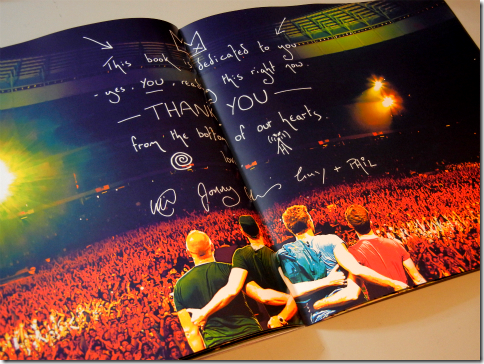 This book is dedicated to you
- yes, YOU, reading this right now.
— THANK YOU —
from the bottom of our hearts.
love
Jonny
+ PHIL